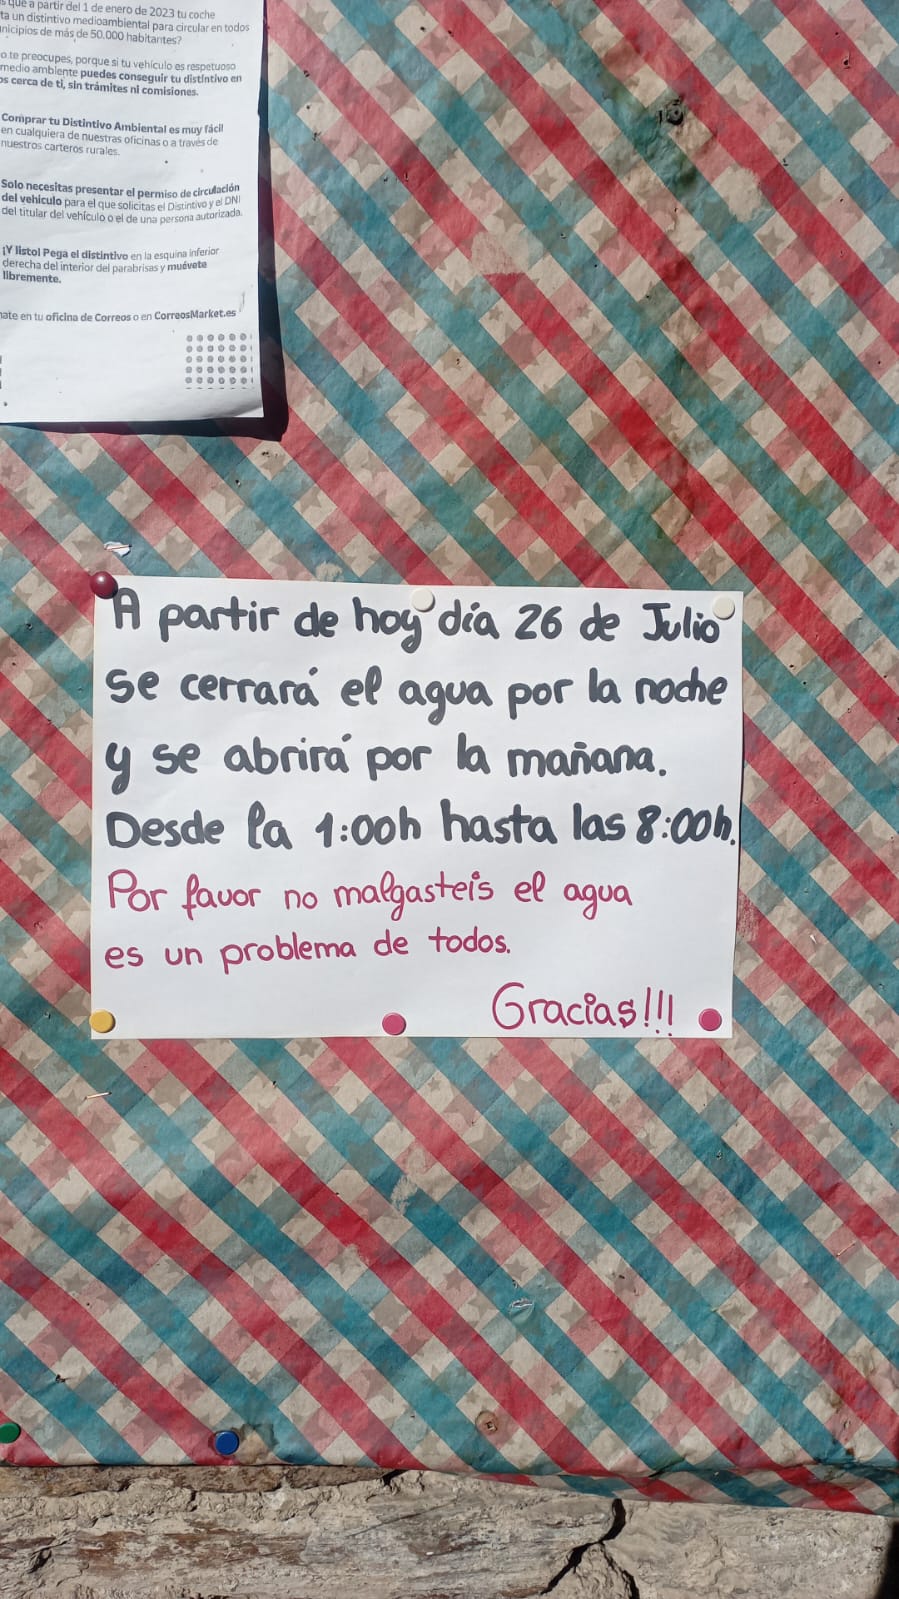 que a partir del 1 de enero de 2023 tu coche
un distintivo medioambiental para circular en todos
de más de 50.000 habitantes?
te preocupes, porque si tu vehículo es respetuoso
medio ambiente puedes conseguir tu distintivo en
cerca de ti, sin trámites ni comisiones.
Comprar tu Distintivo Ambiental es muy fácil
en cualquiera de nuestras oficinas o a través de
nuestros carteros rurales.
Solo necesitas presentar el permiso de circulación
del vehículo para el que solicitas el Distintivo y el DNI
del titular del vehículo o el de una persona autorizada.
¡Y listo! Pega el distintivo en la esquina inferior
derecha del interior del parabrisas y muévete
libremente.
en tu oficina de Correos o en CorreosMarket.es
A partir de hoy día 26 de Julio
se cerrará el agua por la noche
y se abrirá por la mañana.
Desde la 1:00h hasta las 8:00h.
Por favor no malgasteis el agua
es un problema de todos.
Gracias!!!